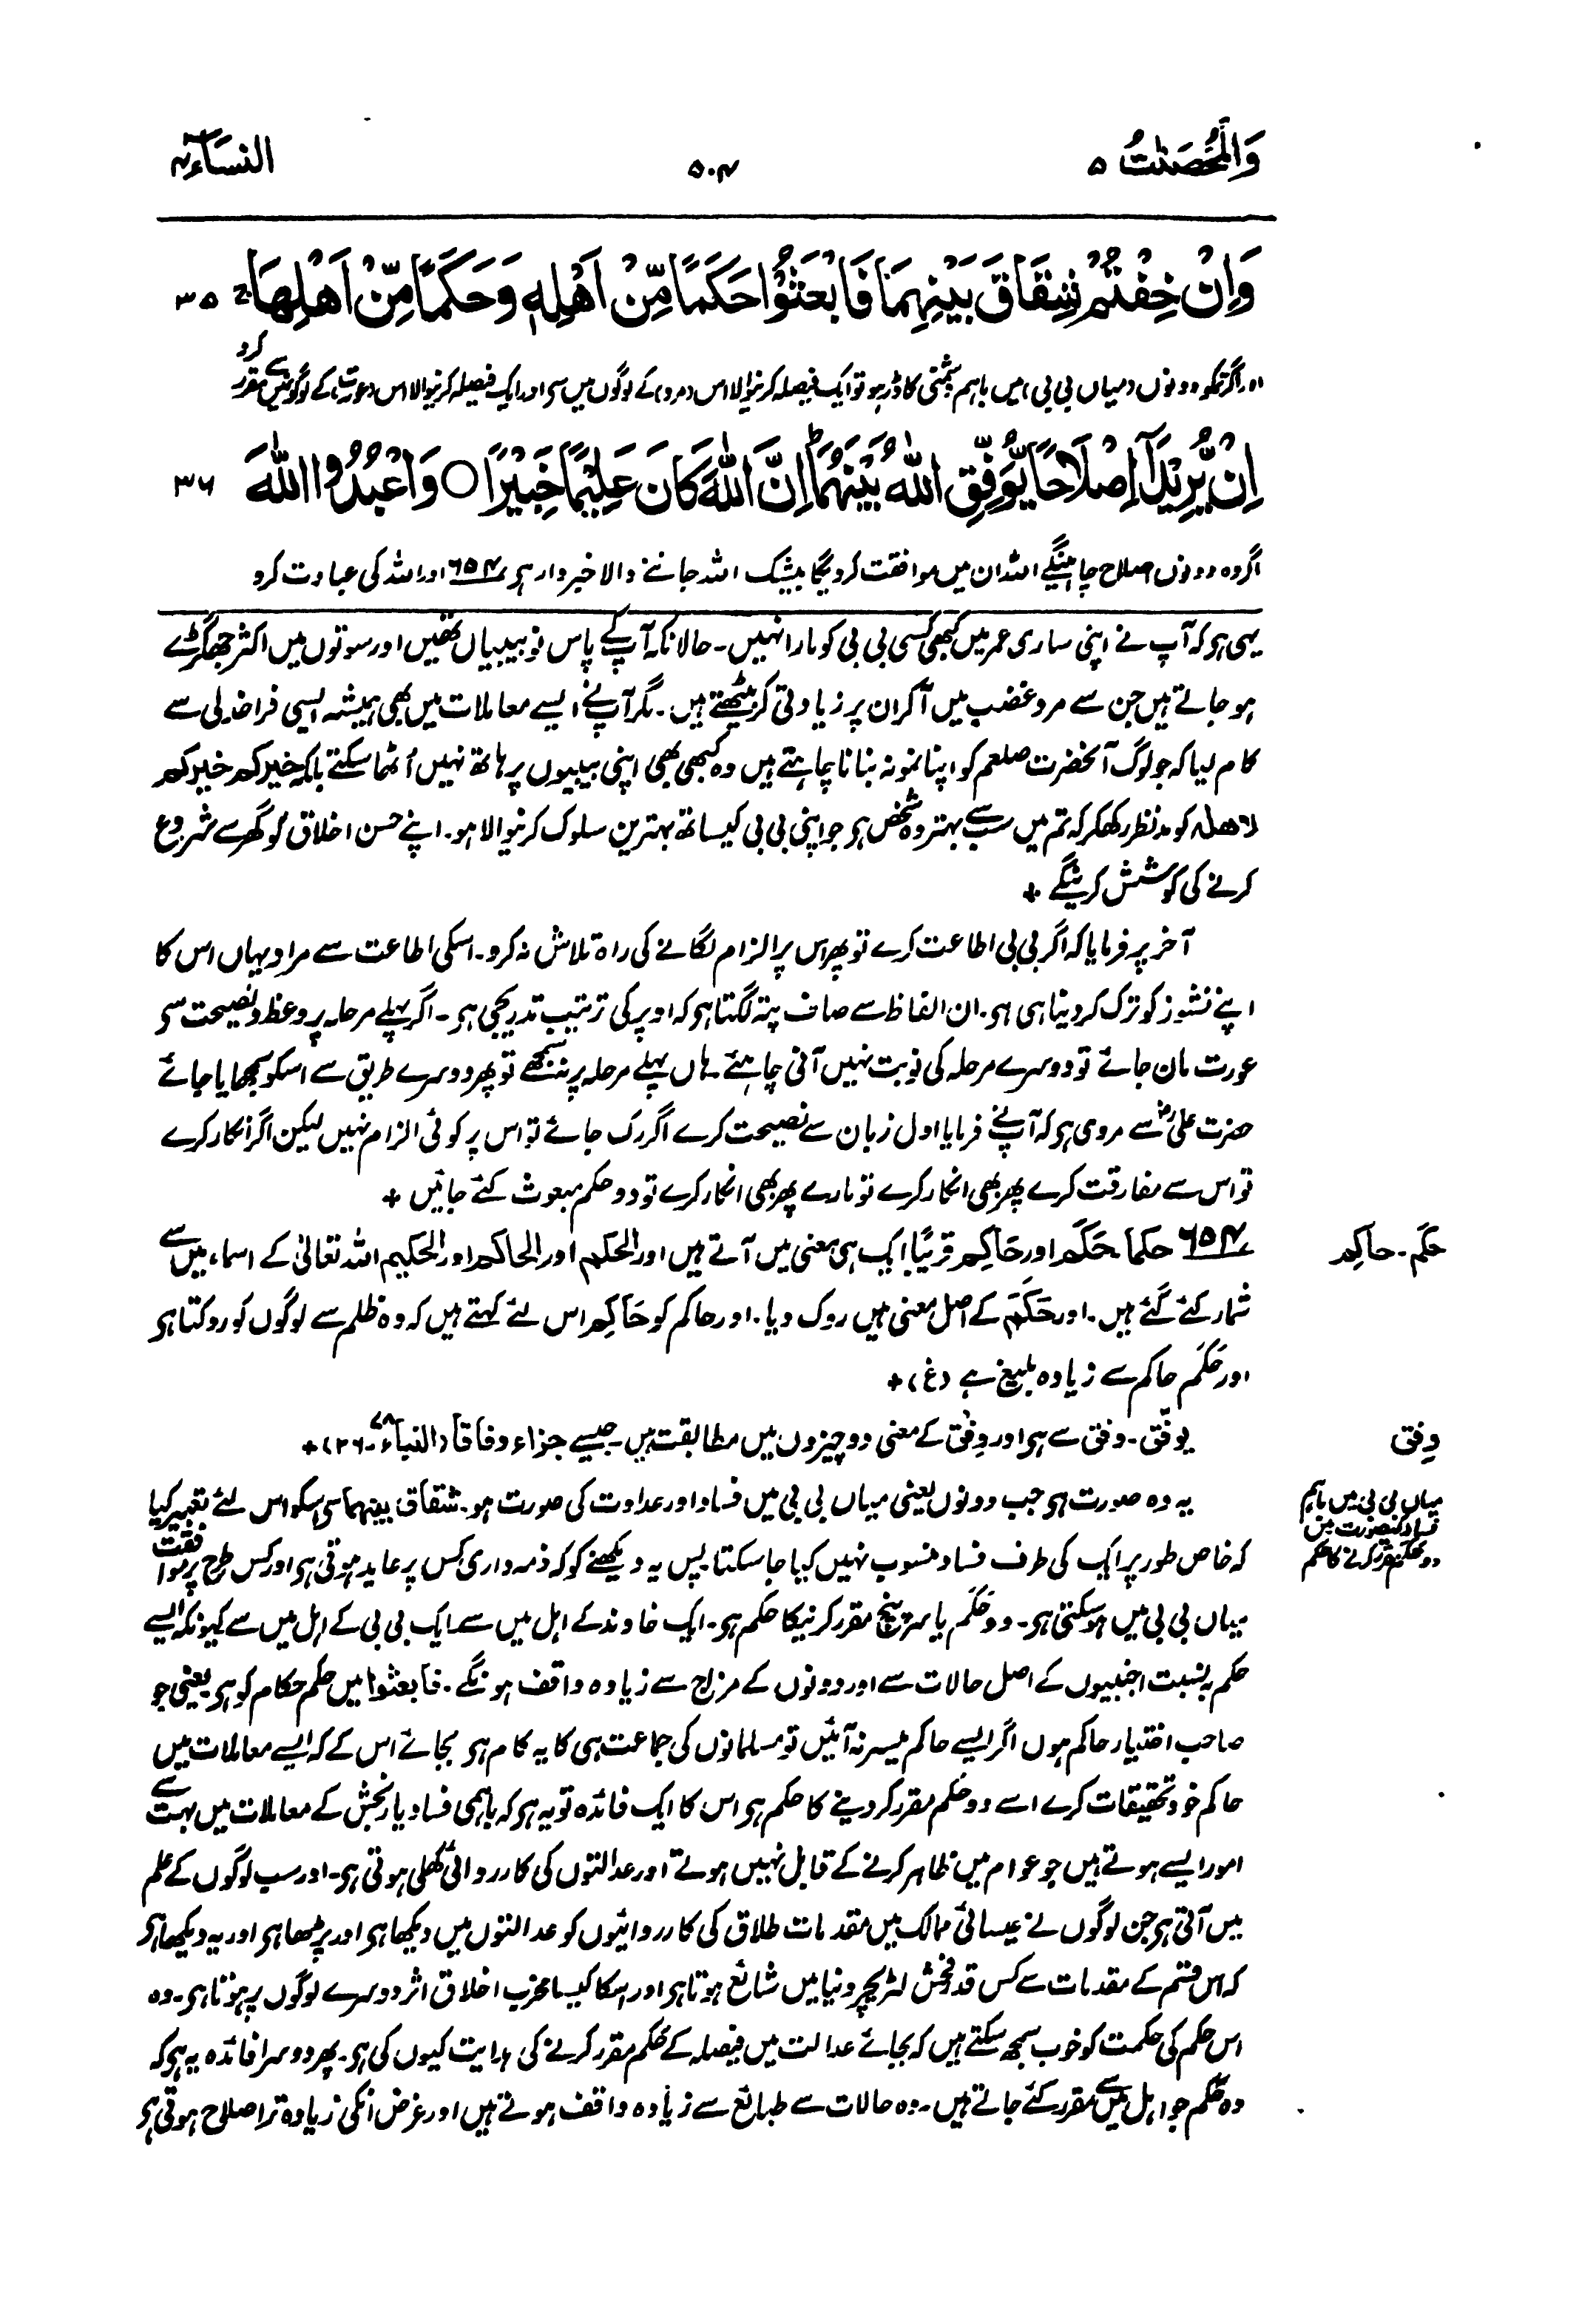 وَالْمُحْصَنٰتُ ۵
۵۰۴
النسآء ۴
وَاِنْ خِفْتُمْ شِقَاقَ بَيْنِهِمَا فَابْعَثُوْا حَكَمًا مِّنْ اَهْلِهٖ وَحَكَمًا مِّنْ اَهْلِهَا ۚ ۳۵
اور اگر تمکو دونوں (میاں بی بی) میں باہم دشمنی کا ڈر ہو تو ایک فیصلہ کرنیوالا اس (مرد) کے لوگوں میں سے اور ایک فیصلہ کرنیوالا اس (عورت) کے لوگوں میں سے مقرر کرو
اِنْ يُّرِيْدَآ اِصْلَاحًا يُّوَفِّقِ اللّٰهُ بَيْنَهُمَا ؕ اِنَّ اللّٰهَ كَانَ عَلِيْمًا خَبِيْرًا ○ وَاعْبُدُوا اللّٰهَ ۳۶
اگر وہ دونوں اصلاح چاہینگے اللہ ان میں موافقت کردیگا بیشک اللہ جاننے والا خبردار ہی ۶۵۴ اور اللہ کی عبادت کرو
یہی ہی کہ آپ نے اپنی ساری عمر میں کبھی کسی بی بی کو مارا نہیں ۔ حالانکہ آپکے پاس نو بیبیاں تھیں اور سوتوں میں اکثر جھگڑے
ہو جاتے ہیں جن سے مرد غضب میں آکر ان پر زیادتی کر بیٹھتے ہیں ۔ مگر آپنے ایسے معاملات میں بھی ہمیشہ ایسی فراخدلی سے
کام لیا کہ جو لوگ آنحضرت صلعم کو اپنا نمونہ بنانا چاہتے ہیں وہ کبھی بھی اپنی بیبیوں پر ہاتھ نہیں اُٹھا سکتے بلکہ خیرکم خیرکم
لاھلہ کو مدنظر رکھکر کہ تم میں سب سے بہتر وہ شخص ہی جو اپنی بی بی کیساتھ بہترین سلوک کرنیوالا ہو ۔ اپنے حسن اخلاق کو گھر سے شروع
کرنے کی کوشش کرینگے +
آخر پر فرمایا کہ اگر بی بی اطاعت کرے تو پھر اس پر الزام لگانے کی راہ تلاش نہ کرو ۔ اسکی اطاعت سے مراد یہاں اس کا
اپنے نشوز کو ترک کر دینا ہی ہی ۔ ان الفاظ سے صاف پتہ لگتا ہی کہ اوپر کی ترتیب تدریجی ہی ۔ اگر پہلے مرحلہ پر وعظ و نصیحت سے
عورت مان جائے تو دوسرے مرحلہ کی نوبت نہیں آنی چاہئے ۔ ہاں پہلے مرحلہ پر نہ سمجھے تو پھر دوسرے طریق سے اسکو سمجھایا جائے
حضرت علیؓ سے مروی ہی کہ آپنے فرمایا اول زبان سے نصیحت کرے اگر رک جائے تو اس پر کوئی الزام نہیں لیکن اگر انکار کرے
تو اس سے مفارقت کرے پھر بھی انکار کرے تو مارے پھر بھی انکار کرے تو دو حکم مبعوث کئے جائیں +
حَکَم ۔ حاکِم
۶۵۴ حکما حَکَم اور حَاکِم قریبًا ایک ہی معنی میں آتے ہیں اور الحَکَم اور الحاکم اور الحکیم اللہ تعالیٰ کے اسماء میں سے
شمار کئے گئے ہیں ۔ اور حَکَمَ کے اصل معنی ہیں روک دیا ۔ اور حاکم کو حَاکِم اس لئے کہتے ہیں کہ وہ ظلم سے لوگوں کو روکتا ہی
اور حَکَم حاکم سے زیادہ بلیغ ہے (غ) +
وِفق
یوفّق ۔ وفق سے ہی اور وِفْق کے معنی دو چیزوں میں مطابقت ہیں ۔ جیسے جزاء وفاقا (النباء ۷۸ ۔ ۲۶) +
میاں بی بی میں باہم
فساد کی صورت میں
دو حکم مقرر کرنے کا حکم
یہ وہ صورت ہی جب دونوں یعنی میاں بی بی میں فساد اور عداوت کی صورت ہو ۔ شقاق بینہما سے اسکو اس لئے تعبیر کیا
کہ خاص طور پر ایک کی طرف فساد منسوب نہیں کیا جا سکتا پس یہ دیکھنے کو کہ ذمہ داری کس پر عاید ہوتی ہی اور کس طرح پر موافقت
میاں بی بی میں ہو سکتی ہی ۔ دو حَکَم یا سرپنچ مقرر کرنیکا حکم ہی ۔ ایک خاوند کے اہل میں سے ایک بی بی کے اہل میں سے کیونکہ ایسے
حکم بہ نسبت اجنبیوں کے اصل حالات سے اور دونوں کے مزاج سے زیادہ واقف ہونگے ۔ فابعثوا میں حکم حکام کو ہی یعنی جو
صاحب اختیار حاکم ہوں اگر ایسے حاکم میسر نہ آئیں تو مسلمانوں کی جماعت ہی کا یہ کام ہی بجائے اس کے کہ ایسے معاملات میں
حاکم خود تحقیقات کرے اسے دو حَکَم مقرر کر دینے کا حکم ہی اس کا ایک فائدہ تو یہ ہی کہ باہمی فساد یا رنجش کے معاملات میں بہت سے
امور ایسے ہوتے ہیں جو عوام میں ظاہر کرنے کے قابل نہیں ہوتے اور عدالتوں کی کارروائی کُھلی ہوتی ہی ۔ اور سب لوگوں کے علم
میں آتی ہی جن لوگوں نے عیسائی ممالک میں مقدمات طلاق کی کارروائیوں کو عدالتوں میں دیکھا ہی اور پڑھا ہی اور یہ دیکھا ہی
کہ اس قسم کے مقدمات سے کس قدر فحش لٹریچر دنیا میں شائع ہوتا ہی اور اسکا کیسا مخرب اخلاق اثر دوسرے لوگوں پر ہوتا ہی ۔ وہ
اس حکم کی حکمت کو خوب سمجھ سکتے ہیں کہ بجائے عدالت میں فیصلہ کے حَکَم مقرر کرنے کی ہدایت کیوں کی ہی ۔ پھر دوسرا فائدہ یہ ہی کہ
وہ حَکَم جو اہل میں سے مقرر کئے جاتے ہیں ۔ وہ حالات سے طبائع سے زیادہ واقف ہوتے ہیں اور غرض انکی زیادہ تر اصلاح ہوتی ہی